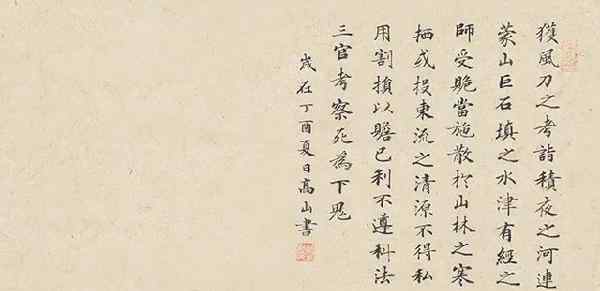 獲風刀之考詣積夜之河連
蒙山巨石填之水津有經之
師受當施散於山林之寒
栖或投東流之清源不得私
用割損以贍已利不遵科法
三官考察死為下鬼
歲在丁酉夏日高山書